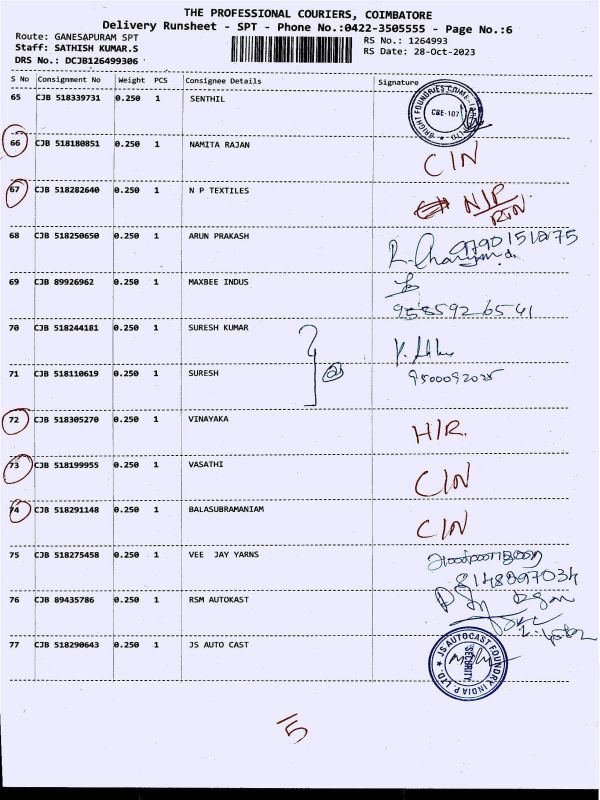 THE PROFESSIONAL COURIERS, COIMBATORE
Delivery Runsheet - SPT - Phone No.:0422-3505555 - Page No.:6
Route: GANESAPURAM SPT RS No.: 1264993
Staff: SATHISH KUMAR.S RS Date: 28-Oct-2023
DRS No.: DCJB126499306
S No Consignment No Weight PCS Consignee Details Signature
65 CJB 518339731 0.250 1 SENTHIL
CBE-107
66 CJB 518180851 0.250 1 NAMITA RAJAN CIN
67 CJB 518282640 0.250 1 N P TEXTILES N/P
RTN
68 CJB 518250650 0.250 1 ARUN PRAKASH
69 CJB 89926962 0.250 1 MAXBEE INDUS
9585926541
70 CJB 518244181 0.250 1 SURESH KUMAR
71 CJB 518110619 0.250 1 SURESH 9500092025
72 CJB 518305270 0.250 1 VINAYAKA H/R.
73 CJB 518199955 0.250 1 VASATHI CIN
74 CJB 518291148 0.250 1 BALASUBRAMANIAM CIN
75 CJB 518275458 0.250 1 VEE JAY YARNS
8148097034
76 CJB 89435786 0.250 1 RSM AUTOKAST
77 CJB 518290643 0.250 1 JS AUTO CAST
JS AUTOCAST FOUNDRY INDIA P. LTD.
SECURITY
15